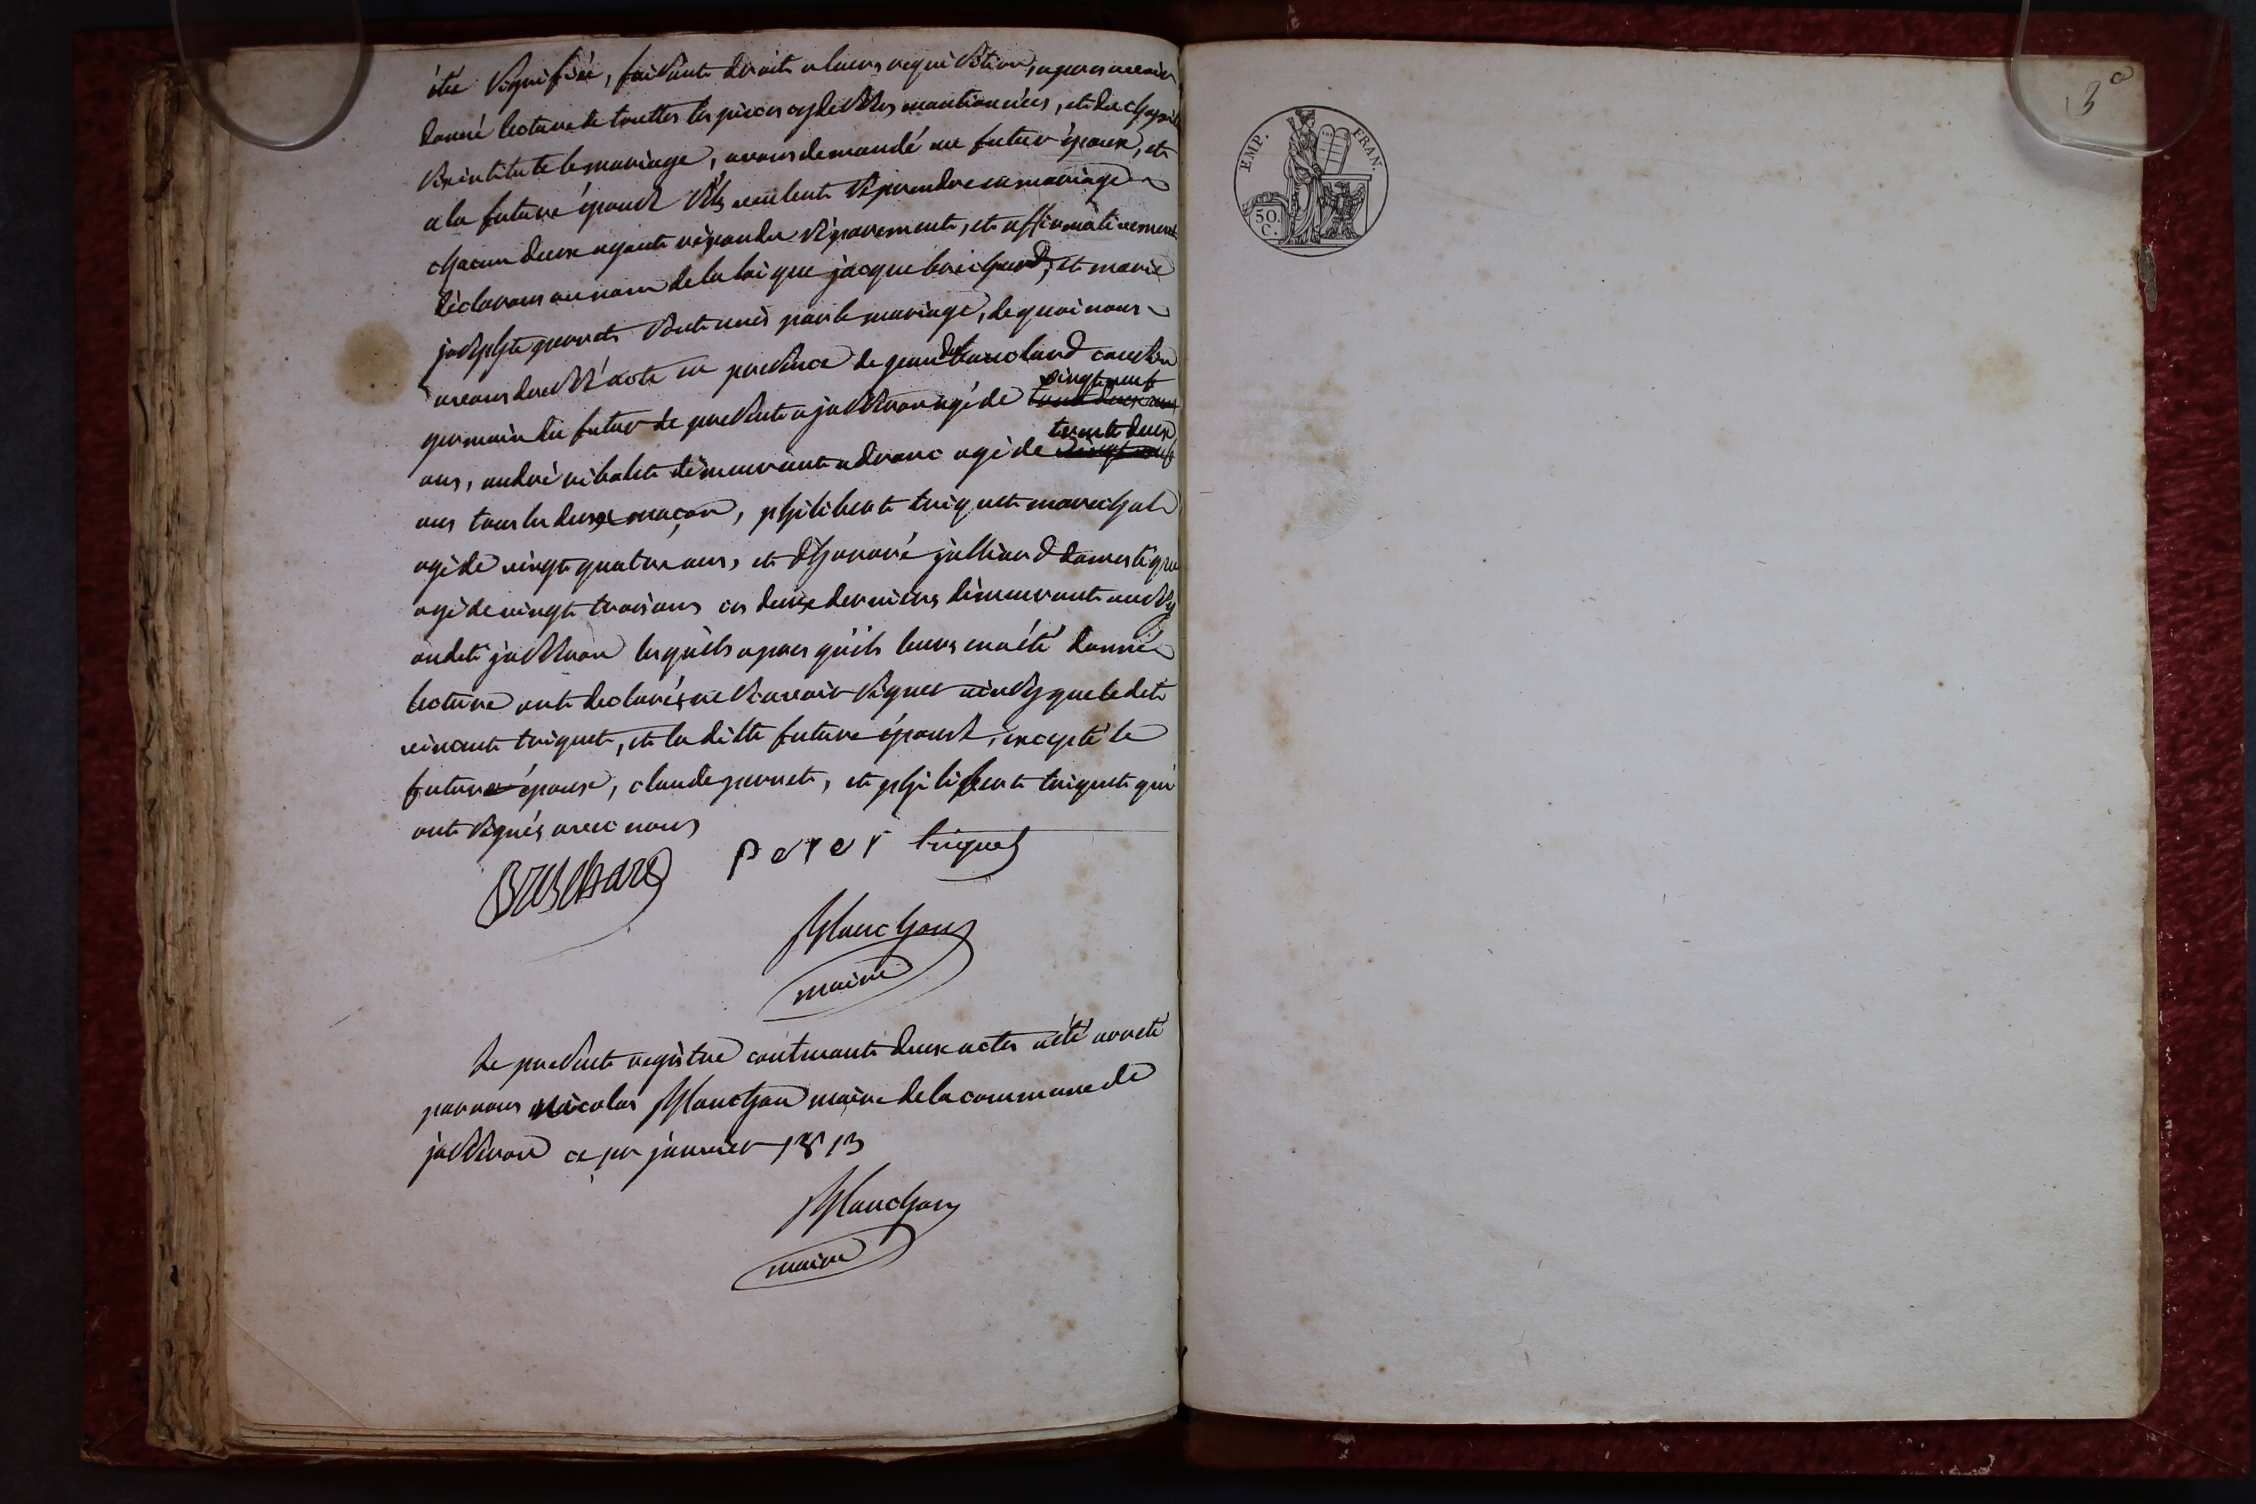 été signifiée, faisante droite a leurs requisition, apres avoir
donné lecture de touttes les pièces cy dessus mantionnées, et du chapitre
six intitute le mariage, avons demandé au futur époux, et
a la future épouse s'ils veullent se prendre en mariage
chacun deux ayante répondu séparemente, et affirmativement
déclarons au nom de la loi que jacque brichard, et marie
josephte perrets sonte unis par le mariage, de quoi nous
avons dressé acte en presence de jean blancland cousin
germain du futur de presente a jasseron agé de vingt neuf
ans, andré ribolete démeurante adranc agé de trente deux
ans tous les deux maçon, philiberte triquete marechal
agé de vingt quatre ans, et dhonoré julliand domestique
agé de vingt trois ans ces deux derniers démeurante aussy
audete jasseron lesquels apres qu'ils leurs en a été donné
lecture onte declarés ne savoir signer ainsy que le dete
vincente triquete, et la ditte future épouse, excepté le
future époux, claude perrete, et philiberte triquete qui
onte signés avec nous
Brischard perer triquet
Planchon
maire
Le presente registre contenante deux actes a été arreté
par nous nicolas Planchon maire de la commune de
jasseron ce per janvier 1813
Planchon
maire
3e
EMP. FRAN.
50.
C.